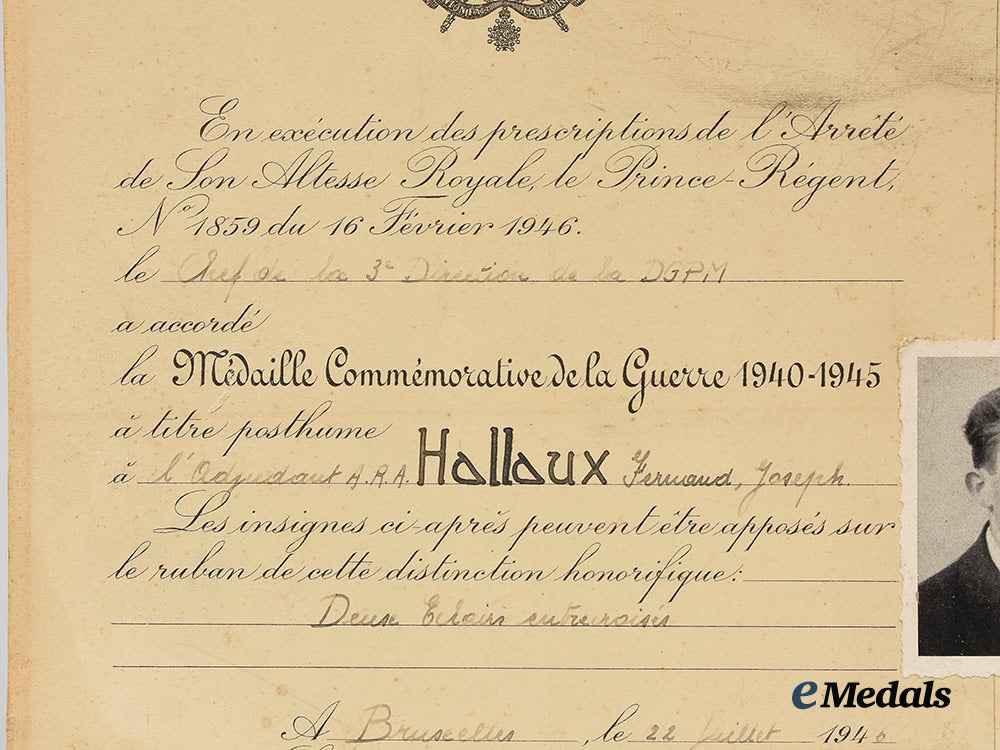 En exécution des prescriptions de l'Arrêté
de Son Altesse Royale, le Prince-Régent,
Nº 1859 du 16 Février 1946.
le Chef de la 3e Direction de la DGPM
a accordé
la Médaille Commémorative de la Guerre 1940-1945
à titre posthume
à l'Adjudant A.R.A. Hallaux Fernand, Joseph.
Les insignes ci-après peuvent être apposés sur
le ruban de cette distinction honorifique:
Deux Eclairs entrecroisés
A Bruxelles, le 22 Juillet 1946
eMedals